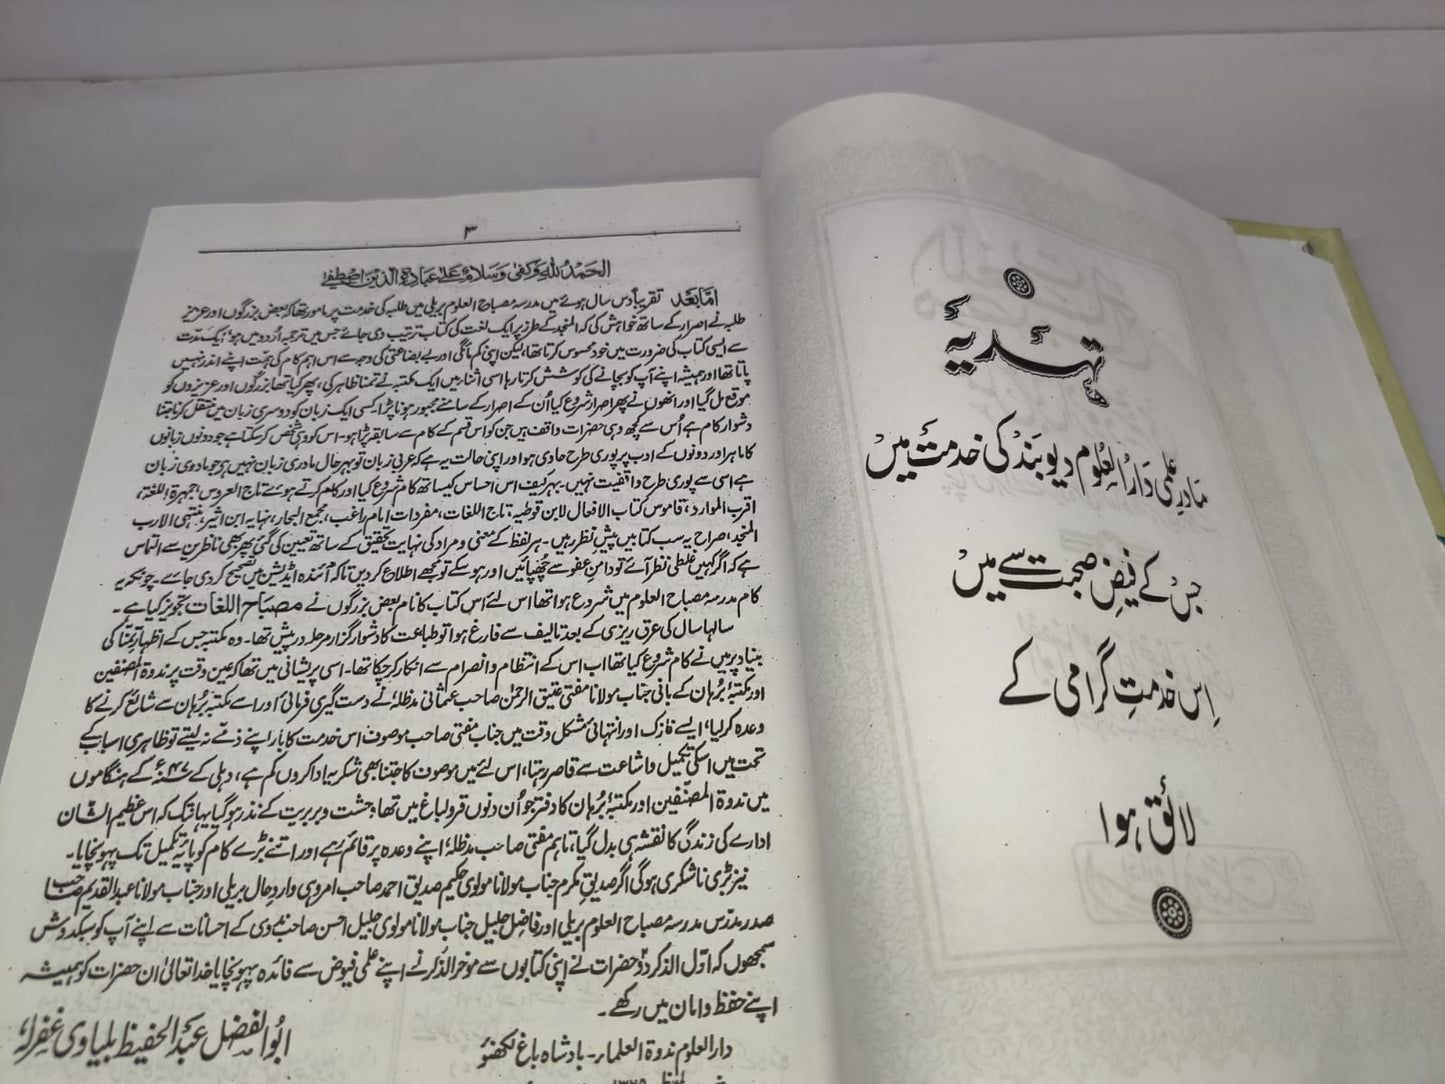 ہدیۂ
مادرِ علمی دارُ العلوم دیوبند کی خدمت میں
جس کے فیضِ صحبت سے میں
اِس خدمتِ گرامی کے
لائق ہوا
۳
الحمد للہ وکفی وسلام علی عبادہ الذین اصطفی
امّا بعد تقریباً دس سال ہوئے میں مدرسہ مصباح العلوم بریلی میں طلبہ کی خدمت پر مامور تھا کہ بعض بزرگوں اور عزیز
طلبہ نے اصرار کے ساتھ خواہش کی کہ المنجد کے طرز پر ایک لغت کی کتاب ترتیب دی جائے جس میں ترجمہ اُردو میں ہو، ایک مدت
سے ایسی کتاب کی ضرورت میں خود محسوس کرتا تھا، لیکن اپنی کم مائگی اور بے بضاعتی کی وجہ سے اس اہم کام کی ہمت اپنے اندر نہیں
پاتا تھا اور ہمیشہ اپنے آپ کو بچانے کی کوشش کرتا رہا اسی اثنا میں ایک مکتبہ نے تمنا ظاہر کی، پھر کیا تھا بزرگوں اور عزیزوں کو
موقع مل گیا اور انھوں نے پھر اصرار شروع کیا اُن کے اصرار کے سامنے مجبور ہونا پڑا۔ کسی ایک زبان کو دوسری زبان میں منتقل کرنا جتنا
دشوار کام ہے اُس سے کچھ وہی حضرات واقف ہیں جن کو اس قسم کے کام سے سابقہ پڑا ہو۔ اس کو وہی شخص کر سکتا ہے جو دونوں زبانوں
کا ماہر اور دونوں کے ادب پر پوری طرح حاوی ہو اور اپنی حالت یہ ہے کہ عربی زبان تو بہرحال مادری زبان نہیں ہی جو مادری زبان
ہے اسی سے پوری طرح واقفیت نہیں۔ بہر کیف اس احساس کیساتھ کام شروع کیا اور کام کرتے ہوئے تاج العروس، جمہرۃ اللغۃ،
اقرب الموارد، قاموس کتاب الافعال لابن قوطیہ، تاج اللغات، مفردات امام راغب، مجمع البحار، نہایہ ابن اثیر، منتہی الارب
المنجد، صراح یہ سب کتابیں پیش نظر رہیں۔ ہر لفظ کے معنی و مراد کی نہایت تحقیق کے ساتھ تعیین کی گئی پھر بھی ناظرین سے التماس
ہے کہ اگر کہیں غلطی نظر آئے تو دامنِ عفو سے چھپائیں اور ہو سکے تو مجھے اطلاع کر دیں تاکہ آئندہ ایڈیشن میں تصحیح کر دی جائے۔ چونکہ یہ
کام مدرسہ مصباح العلوم میں شروع ہوا تھا اس لئے اس کتاب کا نام بعض بزرگوں نے مصباح اللغات تجویز کیا ہے۔
سالہا سال کی عرق ریزی کے بعد تالیف سے فارغ ہوا تو طباعت کا دشوار گزار مرحلہ درپیش تھا۔ وہ مکتبہ جس کے اظہارِ تمنا کی
بنیاد پر میں نے کام شروع کیا تھا اب اس کے انتظام و انصرام سے انکار کر چکا تھا۔ اسی پریشانی میں تھا کہ عین وقت پر ندوۃ المصنفین
اور مکتبۂ بُرہان کے بانی جناب مولانا مفتی عتیق الرحمٰن صاحب عثمانی مدظلہٗ نے دست گیری فرمائی اور اسے مکتبہ بُرہان سے شائع کرنے کا
وعدہ کر لیا، ایسے نازک اور انتہائی مشکل وقت میں جناب مفتی صاحب موصوف اس خدمت کا بار اپنے ذمّے نہ لیتے تو ظاہری اسباب کے
تحت میں اسکی تکمیل و اشاعت سے قاصر رہتا، اس لئے میں موصوف کا جتنا بھی شکریہ ادا کروں کم ہے، دہلی کے ۴۷ء کے ہنگاموں
میں ندوۃ المصنّفین اور مکتبۂ بُرہان کا دفتر جو اُن دنوں قرولباغ میں تھا وحشت و بربریت کے نذر ہو گیا یہانتک کہ اس عظیم الشّان
ادارے کی زندگی کا نقشہ ہی بدل گیا، تاہم مفتی صاحب مدظلہٗ اپنے وعدہ پر قائم رہے اور اتنے بڑے کام کو پایۂ تکمیل تک پہونچایا۔
نیز بڑی ناشکری ہوگی اگر صدیقِ مکرم جناب مولانا مولوی حکیم صدیق احمد صاحب امروہی واردِ حال بریلی اور جناب مولانا عبد القدیم صاحب
صدر مدرّس مدرسہ مصباح العلوم بریلی اور فاضل جلیل جناب مولانا مولوی جلیل احسن صاحب ندوی کے احسانات سے اپنے آپ کو سبکدوش
سمجھوں کہ اوّل الذکر دو حضرات نے اپنی کتابوں سے موخر الذکر نے اپنے علمی فیوض سے فائدہ پہونچایا خدا تعالیٰ ان حضرات کو ہمیشہ
اپنے حفظ و امان میں رکھے۔
ابُو الفضل عبد الحفیظ بلیاوی غفر لہٗ
دارالعلوم ندوۃ العلماء۔ بادشاہ باغ لکھنؤ